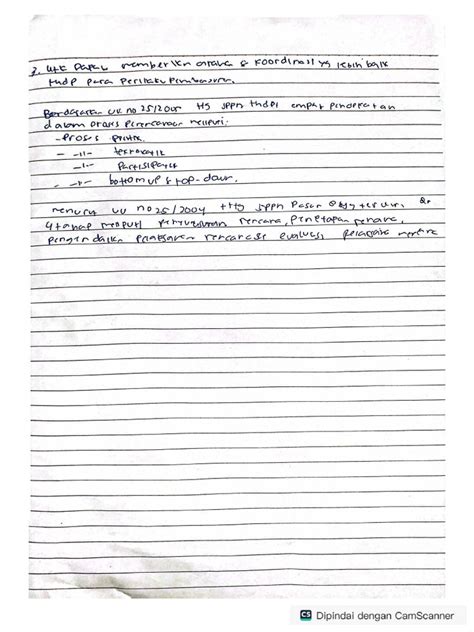 3. utk dapat memberikn arahan & koordinasi yg lebih baik
thdp para perilaku pembangunan.
Berdasarkan UU no 25/2004 ttg SPPN thdpt empat pendekatan
dalam proses perencanaan meliputi:
- proses politik
- -11- teknokratik
- -11- partisipatif
- -11- bottom up & top-down.
menurut UU no 25/2004 ttg SPPN Pasal 8
4 tahap meliputi penyusunan rencana, penetapan rencana,
pengendalian pelaksanaan rencana & evaluasi pelaksana
CS Dipindai dengan CamScanner